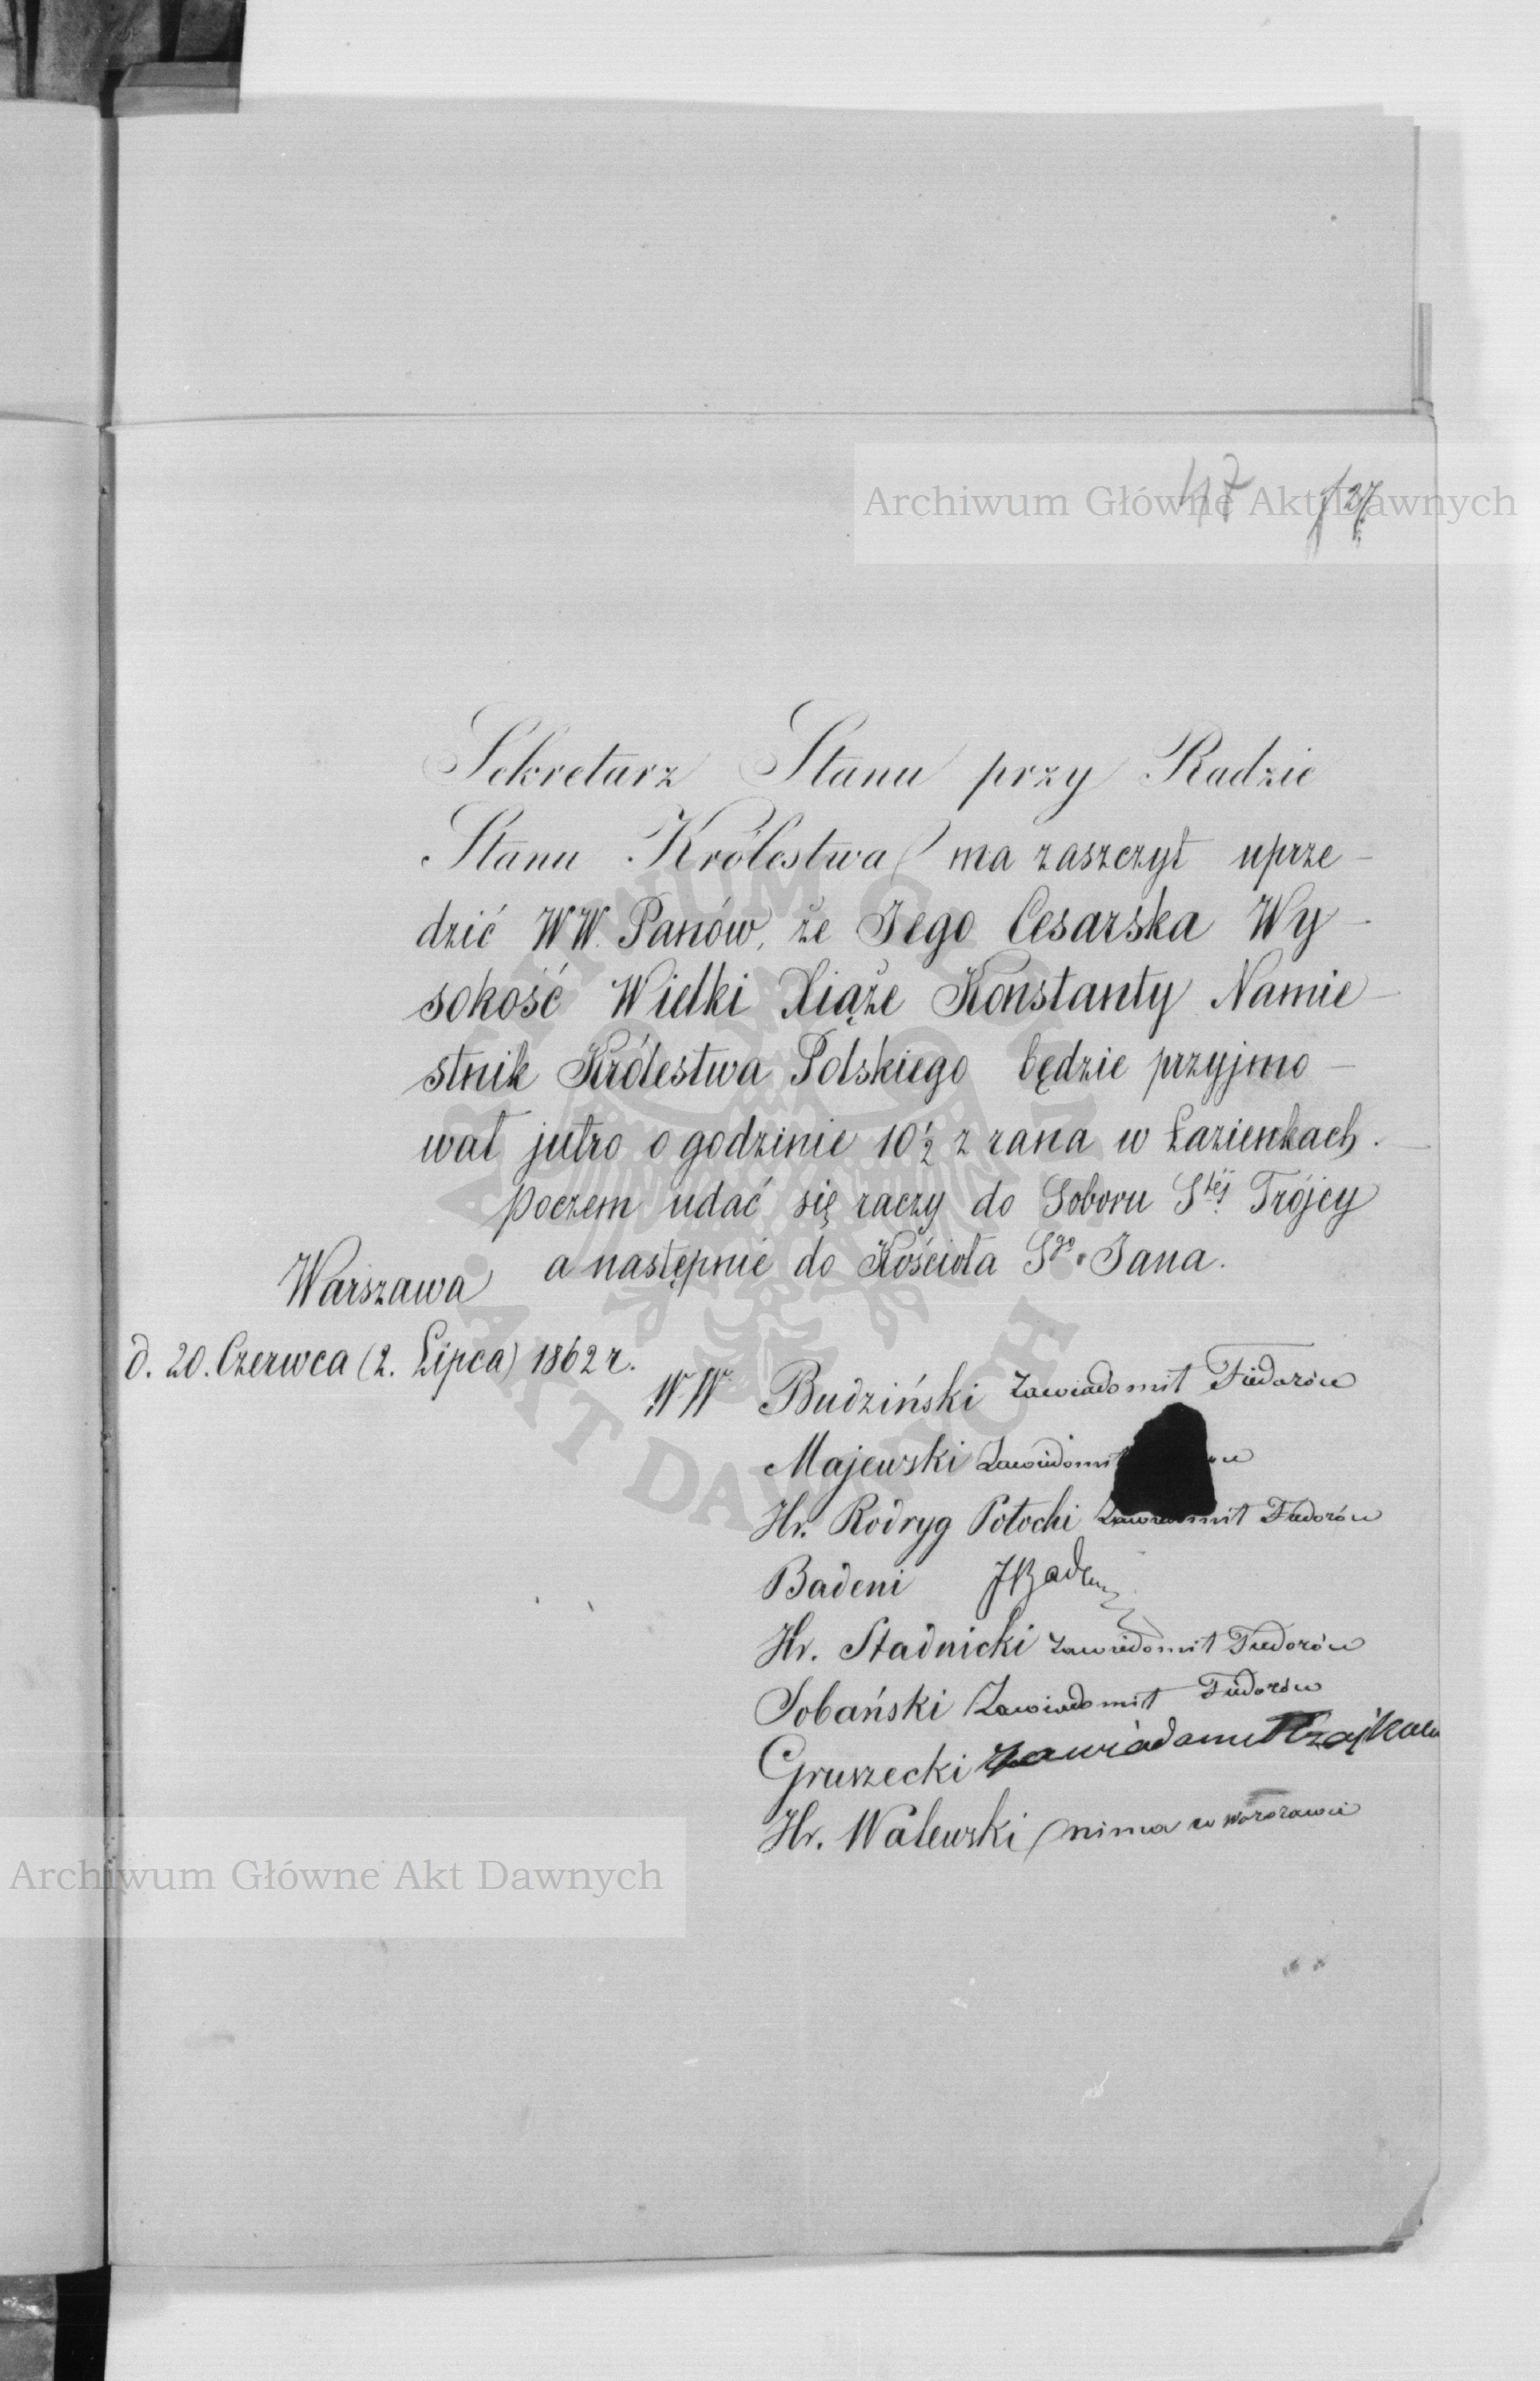 47 127
Sekretarz Stanu przy Radzie
Stanu Królestwa ma zaszczyt uprze-
dzić WW. Panów, że Jego Cesarska Wy-
sokość Wielki Xiąże Konstanty Namie-
stnik Królestwa Polskiego będzie przyjmo-
wał jutro o godzinie 10½ z rana w Łazienkach.
poczem udać się raczy do Soboru Stéj Trójcy
a następnie do Kościoła Sgo Jana.
Warszawa
d. 20. Czerwca (2. Lipca) 1862 r.
WW Budziński zawiadomił Fiedorów
Majewski Zawiadomił
Hr. Rodryg Potocki Zawiadomił Fiedorów
Badeni JBadeni
Hr. Stadnicki zawiadomił Fiedorów
Sobański Zawiadomił Fiedorów
Gruszecki
Hr. Walewski nima w Warszawie
Archiwum Główne Akt Dawnych
Archiwum Główne Akt Dawnych
ARCHIWUM GŁÓWNE AKT DAWNYCH